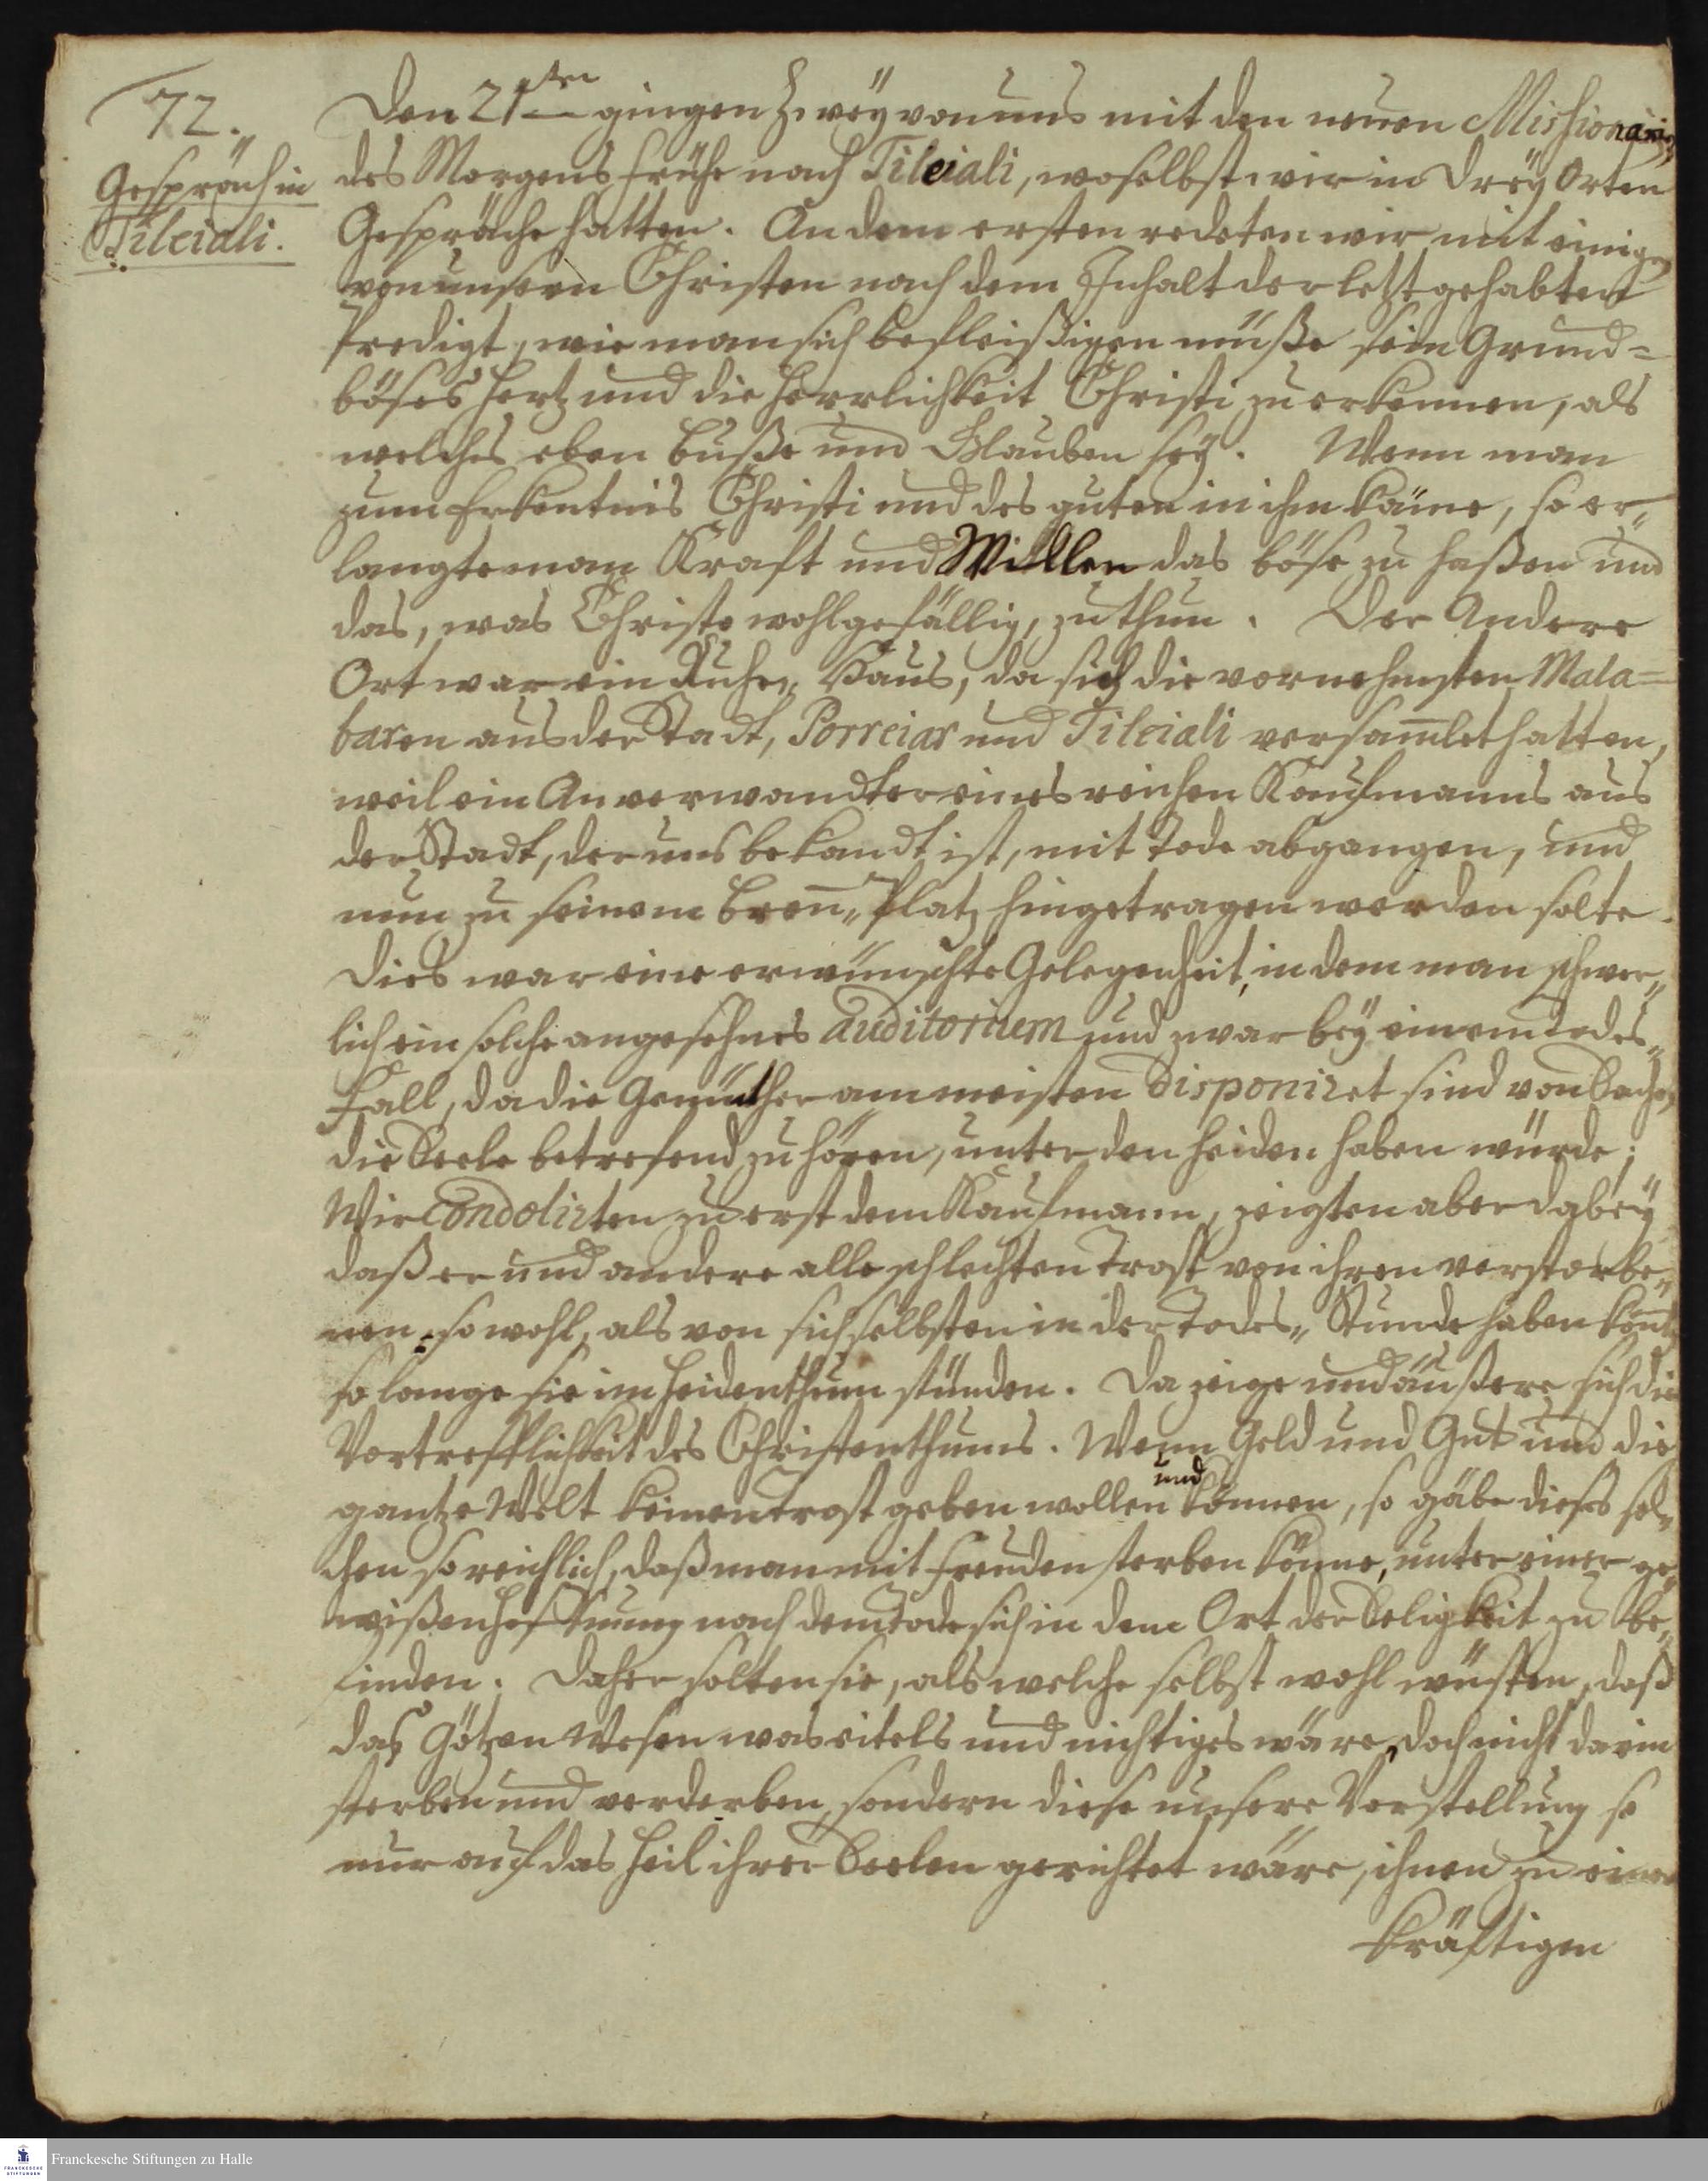 72.
Gespräch in
Tileiali.
Den 21ten gingen Zwey von uns mit den neuen Missionariis
des Morgens frühe nach Tileiali, woselbst wir in drey Orten
Gespräche hatten. An dem ersten redeten wir mit einigen
von unsern Christen nach dem Inhalt der letzt gehabten
Predigt, wie man sich befleißigen müße sein Grund=
böses Hertz und die Herrlichkeit Christi zu erkennen, als
welches eben Buße und Glauben sey. Wenn man
zum Erkentnis Christi und des guten in ihm käme, so er„
langte man Krafft und Willen das böse zu haßen und
das, was Christo wohlgefällig, zu thun. Der Andere
Ort war ein Ruhe„ Haus, da sich die vornehmsten Mala=
baren aus der Stadt, Porreiar und Tileiali versam̅let hatten,
weil ein Anverwandter eines reichen Kaufmanns aus
der Stadt, der uns bekandt ist, mit Tode abgangen, und
nun zu seinem Bren̅„Platz hingetragen werden solte.
Dies war eine erwünschte Gelegenheit, in dem man schwer„
lich ein solche angesehnes auditorium und zwar bey einem Todes„
Fall, da die Gemüther am meisten disponiret sind von Sachen
die Seele betrefend zu hören, unter den Heiden haben würde;
Wir condolirten zu erst dem Kaufmann, zeigten aber dabey
daß er und andere alle schlechten Trost von ihren verstorbe„
nen so wohl, als von sich selbsten in der Todes„ Stunde haben könten
so lange sie im Heidenthum stünden. Da zeige und äußere sich die
Vortrefflichkeit des Christenthums. Wenn Geld und Gut und die
gantze Welt keinen Trost geben wollen und können, so gäbe dieses sol„
chen so reichlich, daß man mit Freuden sterben könne, unter einer ge„
wißen Hoffnung nach dem Tode sich in dem Ort der Seligkeit zu be„
finden. Daher solten sie, als welche selbst wohl wüsten, daß
das Götzen Wesen was eitels und nichtiges wäre, doch nicht darin
sterben und verderben, sondern diese unsere Vorstellung so
nur auf das Heil ihrer Seelen gerichtet wäre, ihnen zu einer
kräftigen
Franckesche Stiftungen zu Halle
FRANCKESCHE
STIFTUNGEN